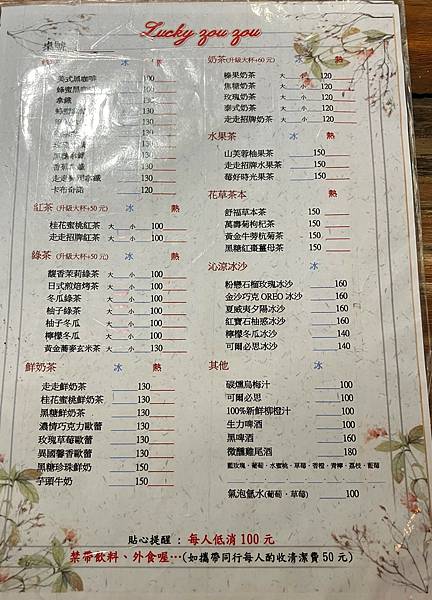 Lucky zou zou
桌號
冰 熱
美式黑咖啡 100
蜂蜜黑咖啡
拿鐵
卡布奇諾 120
紅茶 (升級大杯+50 元) 冰 熱
桂花蜜桃紅茶 大 小 100
走走招牌紅茶 大 小 100
綠茶 (升級大杯+50 元) 冰 熱
馥香茉莉綠茶 大 小 100
日式煎焙烤茶 大 小 100
冬瓜綠茶 大 小 100
柚子綠茶 大 小 100
柚子冬瓜 大 小 100
檸檬冬瓜 大 小 100
黃金蕎麥玄米茶 大 小 130
鮮奶茶 冰 熱
走走鮮奶茶 130
桂花蜜桃鮮奶茶 130
黑糖鮮奶茶 130
濃情巧克力歐蕾 130
玫瑰草莓歐蕾 130
異國馨香歐蕾 130
黑糖珍珠鮮奶 150
芋頭牛奶 150
奶茶(升級大杯+60 元) 冰 熱
榛果奶茶 大 小 120
焦糖奶茶 大 小 120
玫瑰奶茶 大 小 120
泰式奶茶 大 小 120
走走招牌奶茶 大 小 120
水果茶 冰 熱
山芙蓉柚果茶 150
走走招牌水果茶 150
莓好時光果茶 150
花草茶本 熱
舒福草本茶 150
萬壽菊枸杞茶 150
黃金牛蒡杭菊茶 150
黑糖紅棗薑母茶 150
沁涼冰沙 冰
粉戀石榴玫瑰冰沙 160
金沙巧克 OREO 冰沙 160
夏威夷夕陽冰沙 160
紅寶石柚惑冰沙 160
檸檬冬瓜冰沙 140
可爾必思冰沙 140
其他 冰
碳燻烏梅汁 100
可爾必思 100
100%新鮮柳橙汁 100
生力啤酒 100
黑啤酒 160
微醺雞尾酒 180
藍玫瑰‧葡萄‧水蜜桃‧草莓‧香橙‧青檸‧荔枝‧藍莓
氣泡氫水(葡萄‧草莓) 100
貼心提醒 : 每人低消 100 元
禁帶飲料、外食喔…(如攜帶同行每人酌收清潔費 50 元)